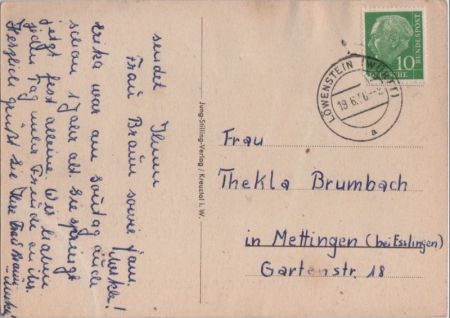 sendet Ihnen
Frau Braun sowie Fam.
Erika war am Sontag auch
schon 1 Jahr alt. Sie springt
jetzt fest alleine. Wir haben
jeden Tag mehr Freude an ihr.
Herzlich grüßt Sie Ihre Frau Braun
Jung-Stilling-Verlag / Kreuztal i. W.
10
DEUTSCHE
BUNDESPOST
LÖWENSTEIN (WÜRTT)
a
Frau
Thekla Brumbach
in Mettingen (bei Esslingen)
Gartenstr. 18